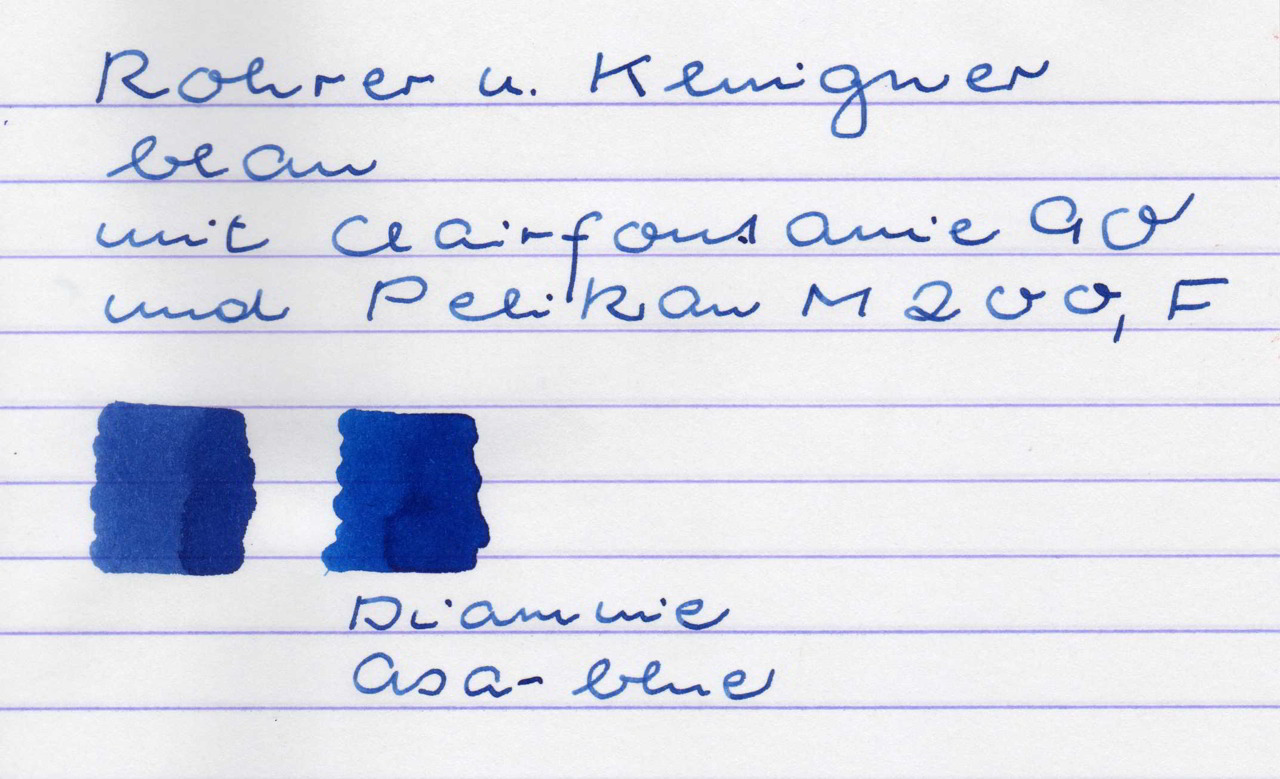 Rohrer u. Klenigner
blau
mit Clairfontanie 90
und Pelikan M200, F
Diammie
asa-blue